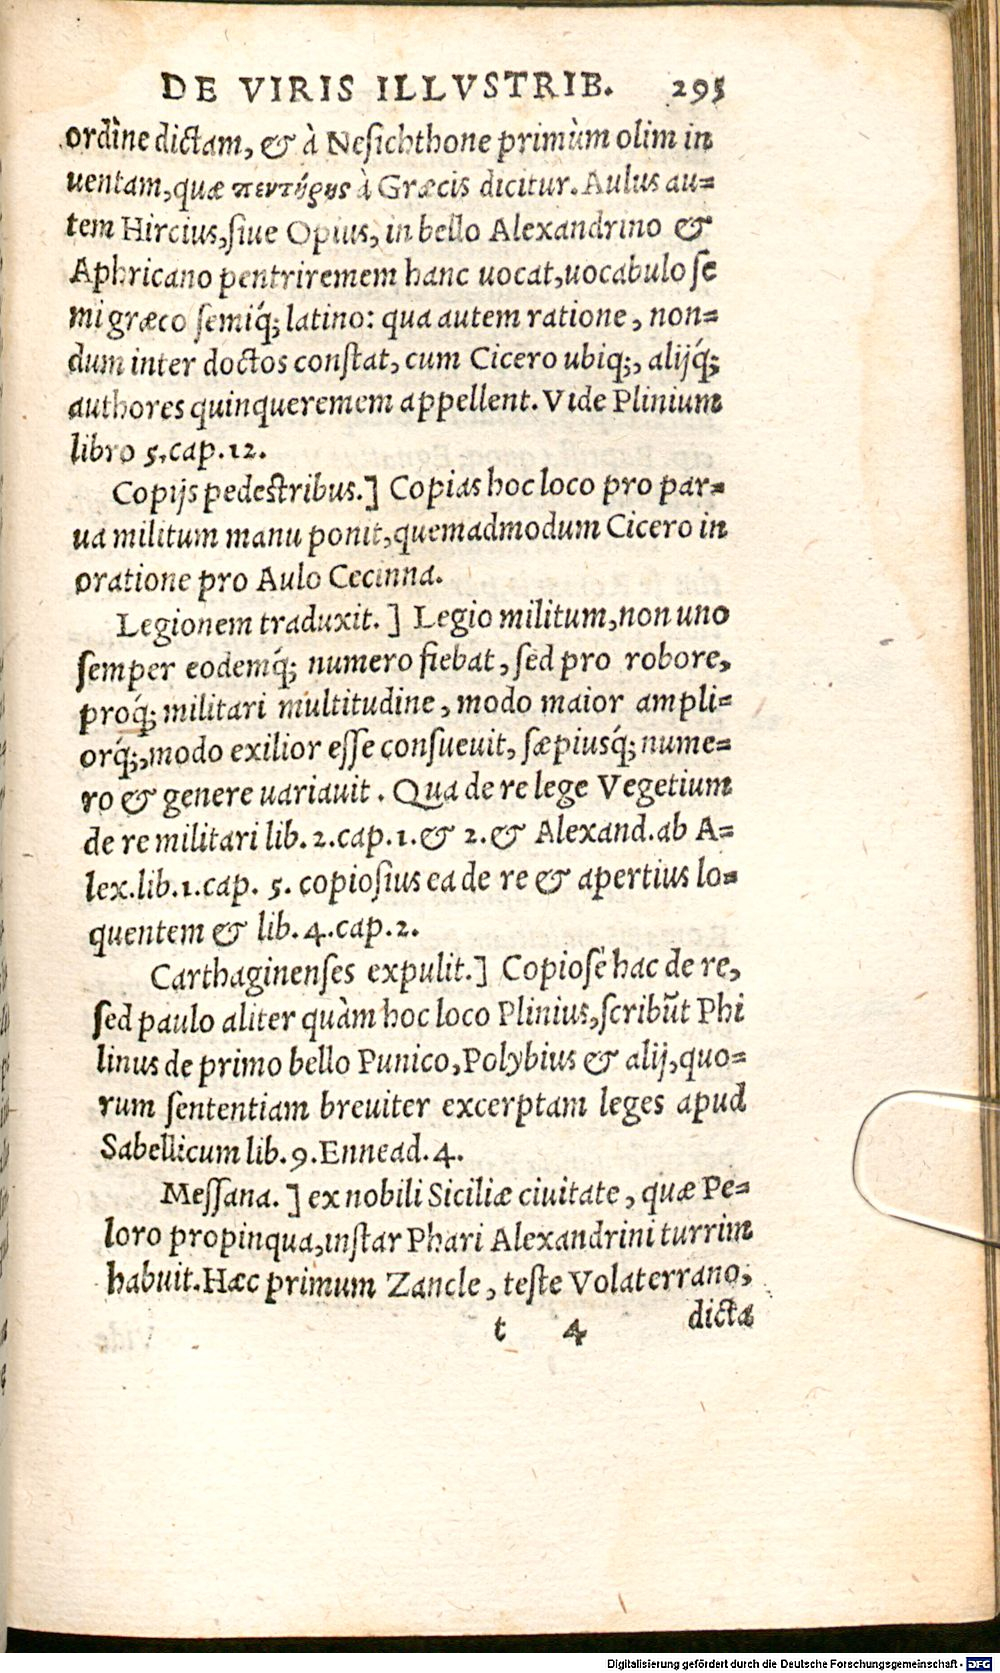 DE VIRIS ILLVSTRIB. 295
ordine dictam, & à Nesichthone primùm olim in
uentam, quæ πεντήρης à Græcis dicitur. Aulus au=
tem Hircius, siue Opius, in bello Alexandrino &
Aphricano pentriremem hanc uocat, uocabulo se
migræco semiq́; latino: qua autem ratione, non=
dum inter doctos constat, cum Cicero ubiq;, alijq́;
authores quinqueremem appellent. Vide Plinium
libro 5. cap. 12.
Copijs pedestribus.] Copias hoc loco pro par=
ua militum manu ponit, quemadmodum Cicero in
oratione pro Aulo Cecinna.
Legionem traduxit.] Legio militum, non uno
semper eodemq́; numero fiebat, sed pro robore,
proq́; militari multitudine, modo maior ampli=
orq́;, modo exilior esse consueuit, sæpiusq́; nume=
ro & genere uariauit. Qua de re lege Vegetium
de re militari lib. 2. cap. 1. & 2. & Alexand. ab A=
lex. lib. 1. cap. 5. copiosius ea de re & apertius lo=
quentem & lib. 4. cap. 2.
Carthaginenses expulit.] Copiosè hac de re,
sed paulo aliter quàm hoc loco Plinius, scribūt Phi
linus de primo bello Punico, Polybius & alij, quo=
rum sententiam breuiter excerptam leges apud
Sabellicum lib. 9. Ennead. 4.
Messana.] ex nobili Siciliæ ciuitate, quæ Pe=
loro propinqua, instar Phari Alexandrini turrim
habuit. Hæc primum Zancle, teste Volaterrano,
t 4 dicta
Digitalisierung gefördert durch die Deutsche Forschungsgemeinschaft - DFG